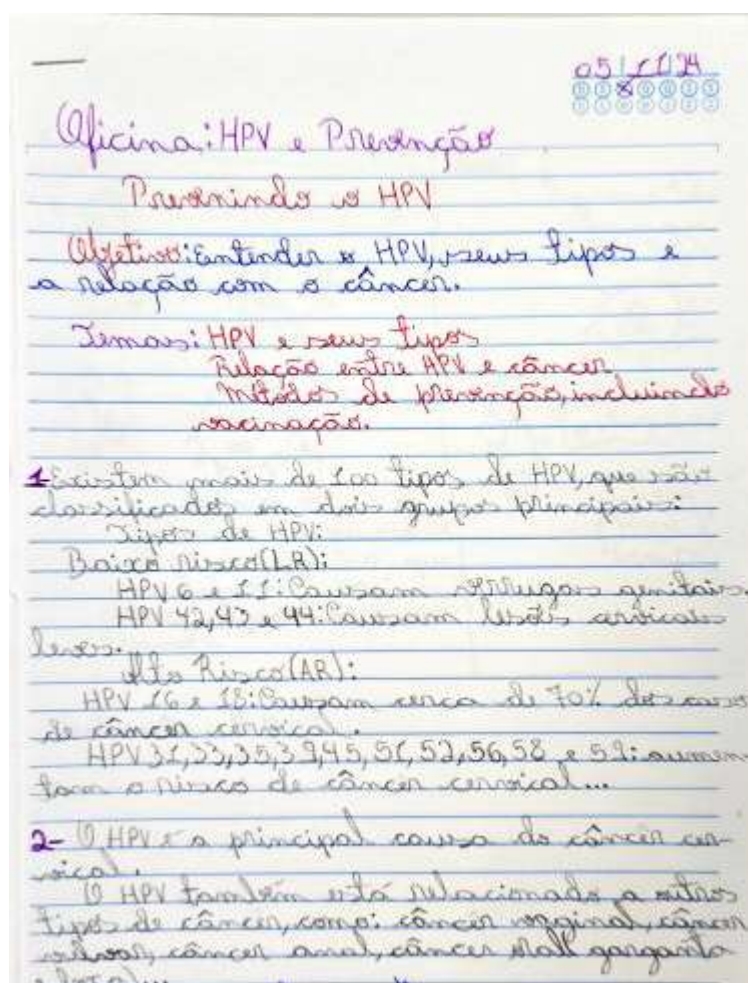 05/11/24
Oficina: HPV e Prevenção
Prevenindo o HPV
Objetivo: Entender o HPV, seus tipos e
a relação com o câncer.
Temas: HPV e seus tipos
Relação entre HPV e câncer
Métodos de prevenção, incluindo
vacinação.
1 Existem mais de 100 tipos de HPV, que são
classificados em dois grupos principais:
Tipos de HPV:
Baixo risco (LR):
HPV 6 e 11: Causam verrugas genitais.
HPV 42, 43 e 44: Causam lesões cervicais
leves.
Alto Risco (AR):
HPV 16 e 18: Causam cerca de 70% dos casos
de câncer cervical.
HPV 31, 33, 35, 39, 45, 51, 52, 56, 58 e 59: aumen-
tam o risco de câncer cervical...
2- O HPV é a principal causa do câncer cer-
vical.
O HPV também está relacionado a outros
tipos de câncer, como: câncer vaginal, câncer
vulvar, câncer anal, câncer garganta